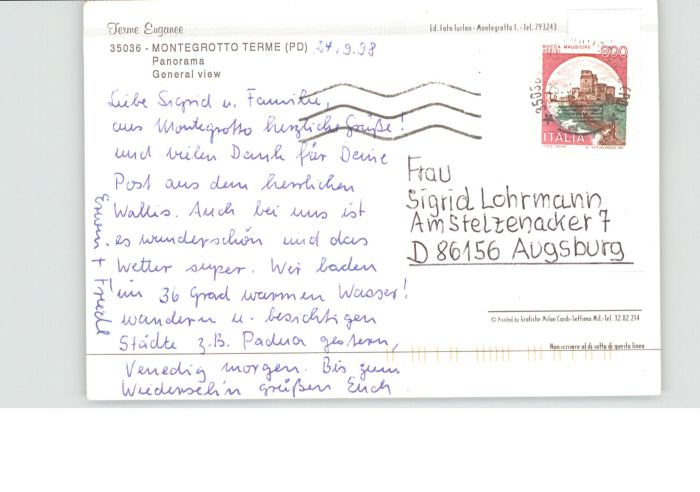 Terme Euganee
Ed. Foto Turlon - Montegrotto T. - Tel. 793243
35036 - MONTEGROTTO TERME (PD) 24.9.98
Panorama
General view
Liebe Sigrid u. Familie,
aus Montegrotto herzliche Grüße!
und vielen Dank für Deine
Post aus dem herrlichen
Wallis. Auch bei uns ist
es wunderschön und das
Wetter super. Wir baden
im 36 Grad warmen Wasser!
wandern u. besichtigen
Städte z.B. Padua gestern,
Venedig morgen. Bis zum
Wiederseh'n grüßen Euch
Erwin + Friedl
ROCCA MAGGIORE
800
ITALIA
35036
Frau
Sigrid Lohrmann
Am Stelzenacker 7
D 86156 Augsburg
© Printed by Grafiche Milan Cards-Settimo Mil.-Tel. 32.82.214
Non scrivere al di sotto di questa linea